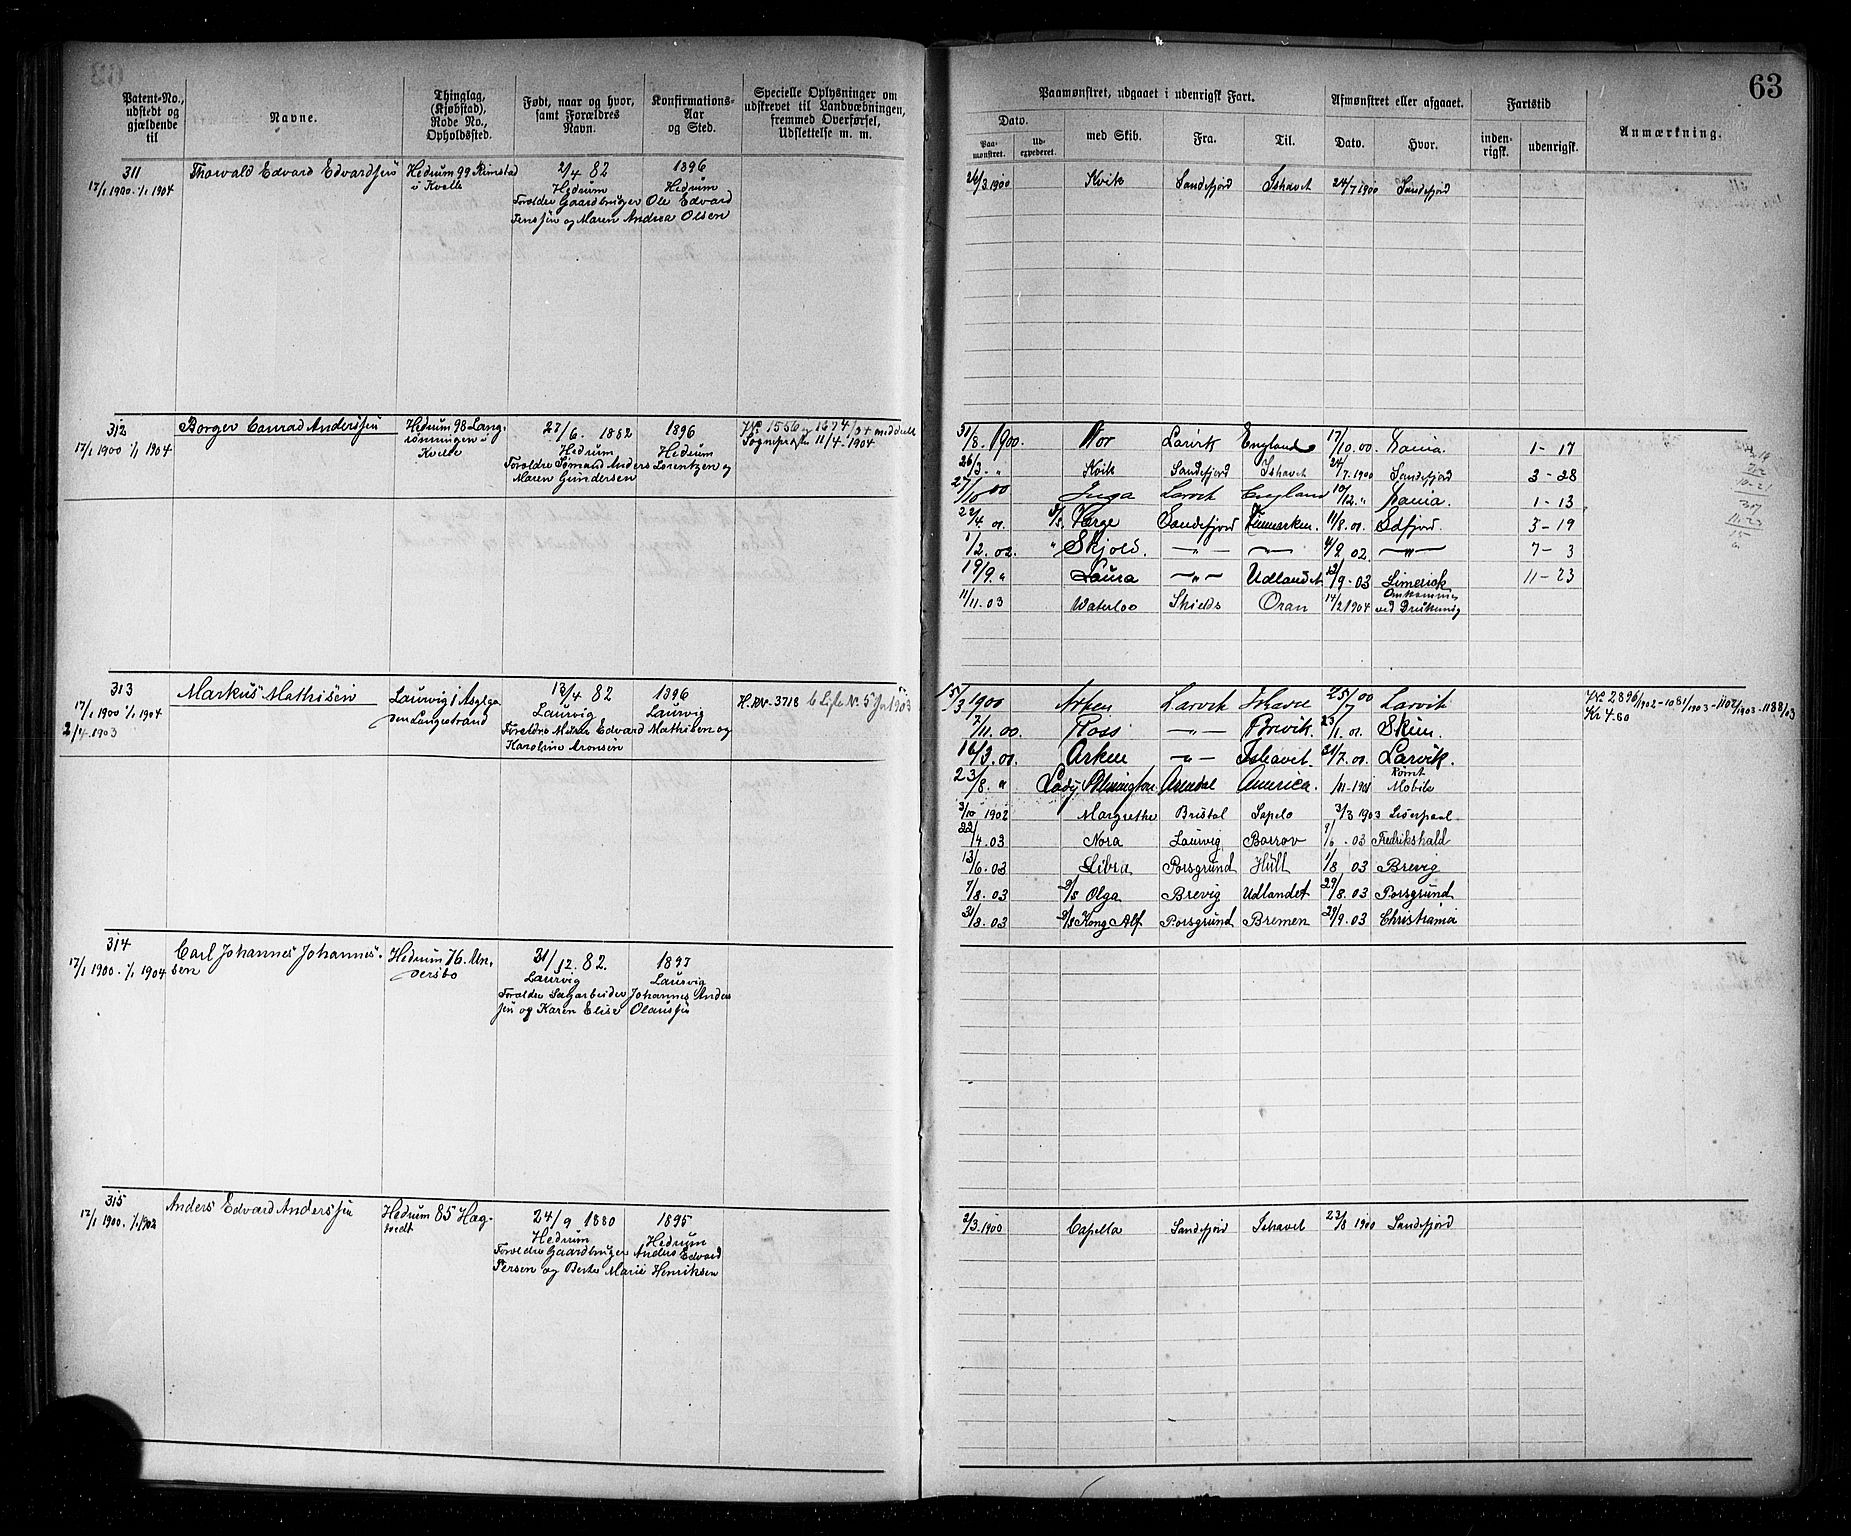 63
Patent-No., udstedt og gjældende til
Navne.
Thinglag, (Kjøbstad), Rode No., Opholdssted.
Født, naar og hvor, samt Forældres Navn.
Konfirmations-Aar og Sted.
Specielle Oplysninger om udskrevet til Landvæbningen, fremmed Overførsel, Udslettelse m. m.
Paamønstret, udgaaet i udenrigsk Fart.
Afmønstret eller afgaaet.
Fartstid
Anmærkning.
Dato.
Paa-mønstret.
Ud-expederet.
med Skib.
Fra.
Til.
Dato.
Hvor.
inden-rigsk.
udenrigsk.
311
17/1 1900 1/1 1904
Thorvald Edvard Edvardsen
Hedrum 99 Rimstad
i Kvelle
2/4 82 1896
Hedrum Hedrum
Forældre Gaardbruger Ole Edvard
Jenssen og Maren Andrea Olsen
26/3 1900 Kvik Sandefjord Ishavet 24/7 1900 Sandefjord
312
17/1 1900 1/1 1904
Borger Conrad Anderssen
Hedrum 98 Lang-
rønningen i
Kvelle
27/6. 1882 1896
Hedrum Hedrum
Forældre Sømand Anders Lorentzen og
Maren Gundersen
No. 1556 1674/04 meddelt
Sognepræsten 11/4-1904
31/8. 1900. Nor Larvik England 17/10. 00. 1-17
26/3. " Kvik Sandefjord Ishavet 24/7. 1900 Sandefjord 3-28
27/10 00 Inga Larvik England 10/12. " 1-13
22/4 01. S/S. Værge Sandefjord Finmarken. 11/8. 01. Sdfjord. 3-19
1/2. 02. " Skjold. —"— —"— 4/9 02 —"— 7-3
19/9. " Laura —"— Udlandet 12/9-03 Limerick 11-23
11/11. 03 Waterloo Shields Oran 14/2 1904 Omkommet
ved Drukning
313
17/1 1900 1/1 1904
2/4. 1903
Markus Mathisen
Laurvig i Asylga
den Langestrand
18/4 82 1896
Laurvig Laurvig
Forældre Murer Edvard Mathisen og
Karoline Aronsen
H.RN. 3718
15/3 1900 Arken Larvik Ishavet 25/7 00 Larvik
No 2896/1902-1081/1903-1102/1903-1188/03
Kr 4.60
7/11. 00. Ross —"— Brevik. 23/1. 01. Skien.
16/3. 01. Arken —"— Ishavet. 31/7. 01. Larvik.
23/8. " Arendal America. /11-1901 Rømt
Mobile
3/10 1902 Margrethe Bristol Sapelo 3/3 1903 Liverpool
22/4. 03 Nora Laurvig Barrov 9/6. 03 Fredrikshald
13/6. 03 Libra Porsgrund Hull 1/8 03 Brevig
7/8. 03 S/S Olga Brevig Udlandet 29/8. 03 Porsgrund
31/8. 03 S/S Kong Alf Porsgrund Bremen 29/9. 03 Christiania
314
17/1 1900. 1/1 1904
Carl Johannes Johannes-
sen
Hedrum 76. Un-
dersbo
31/12. 82. 1897
Laurvig Laurvig
Forældre Sagarbeider Johannes Anders
sen og Karen Elise Olaussen
315
17/1 1900. 1/1 1902
Anders Edvard Anderssen
Hedrum 85 Hag-
tvedt
24/9 1880 1895
Hedrum Hedrum
Forældre Gaardbruger Anders Edvard
Persen og Berte Marie Henriksen
2/3. 1900 Capella Sandefjord Ishavet 23/8 1900 Sandefjord